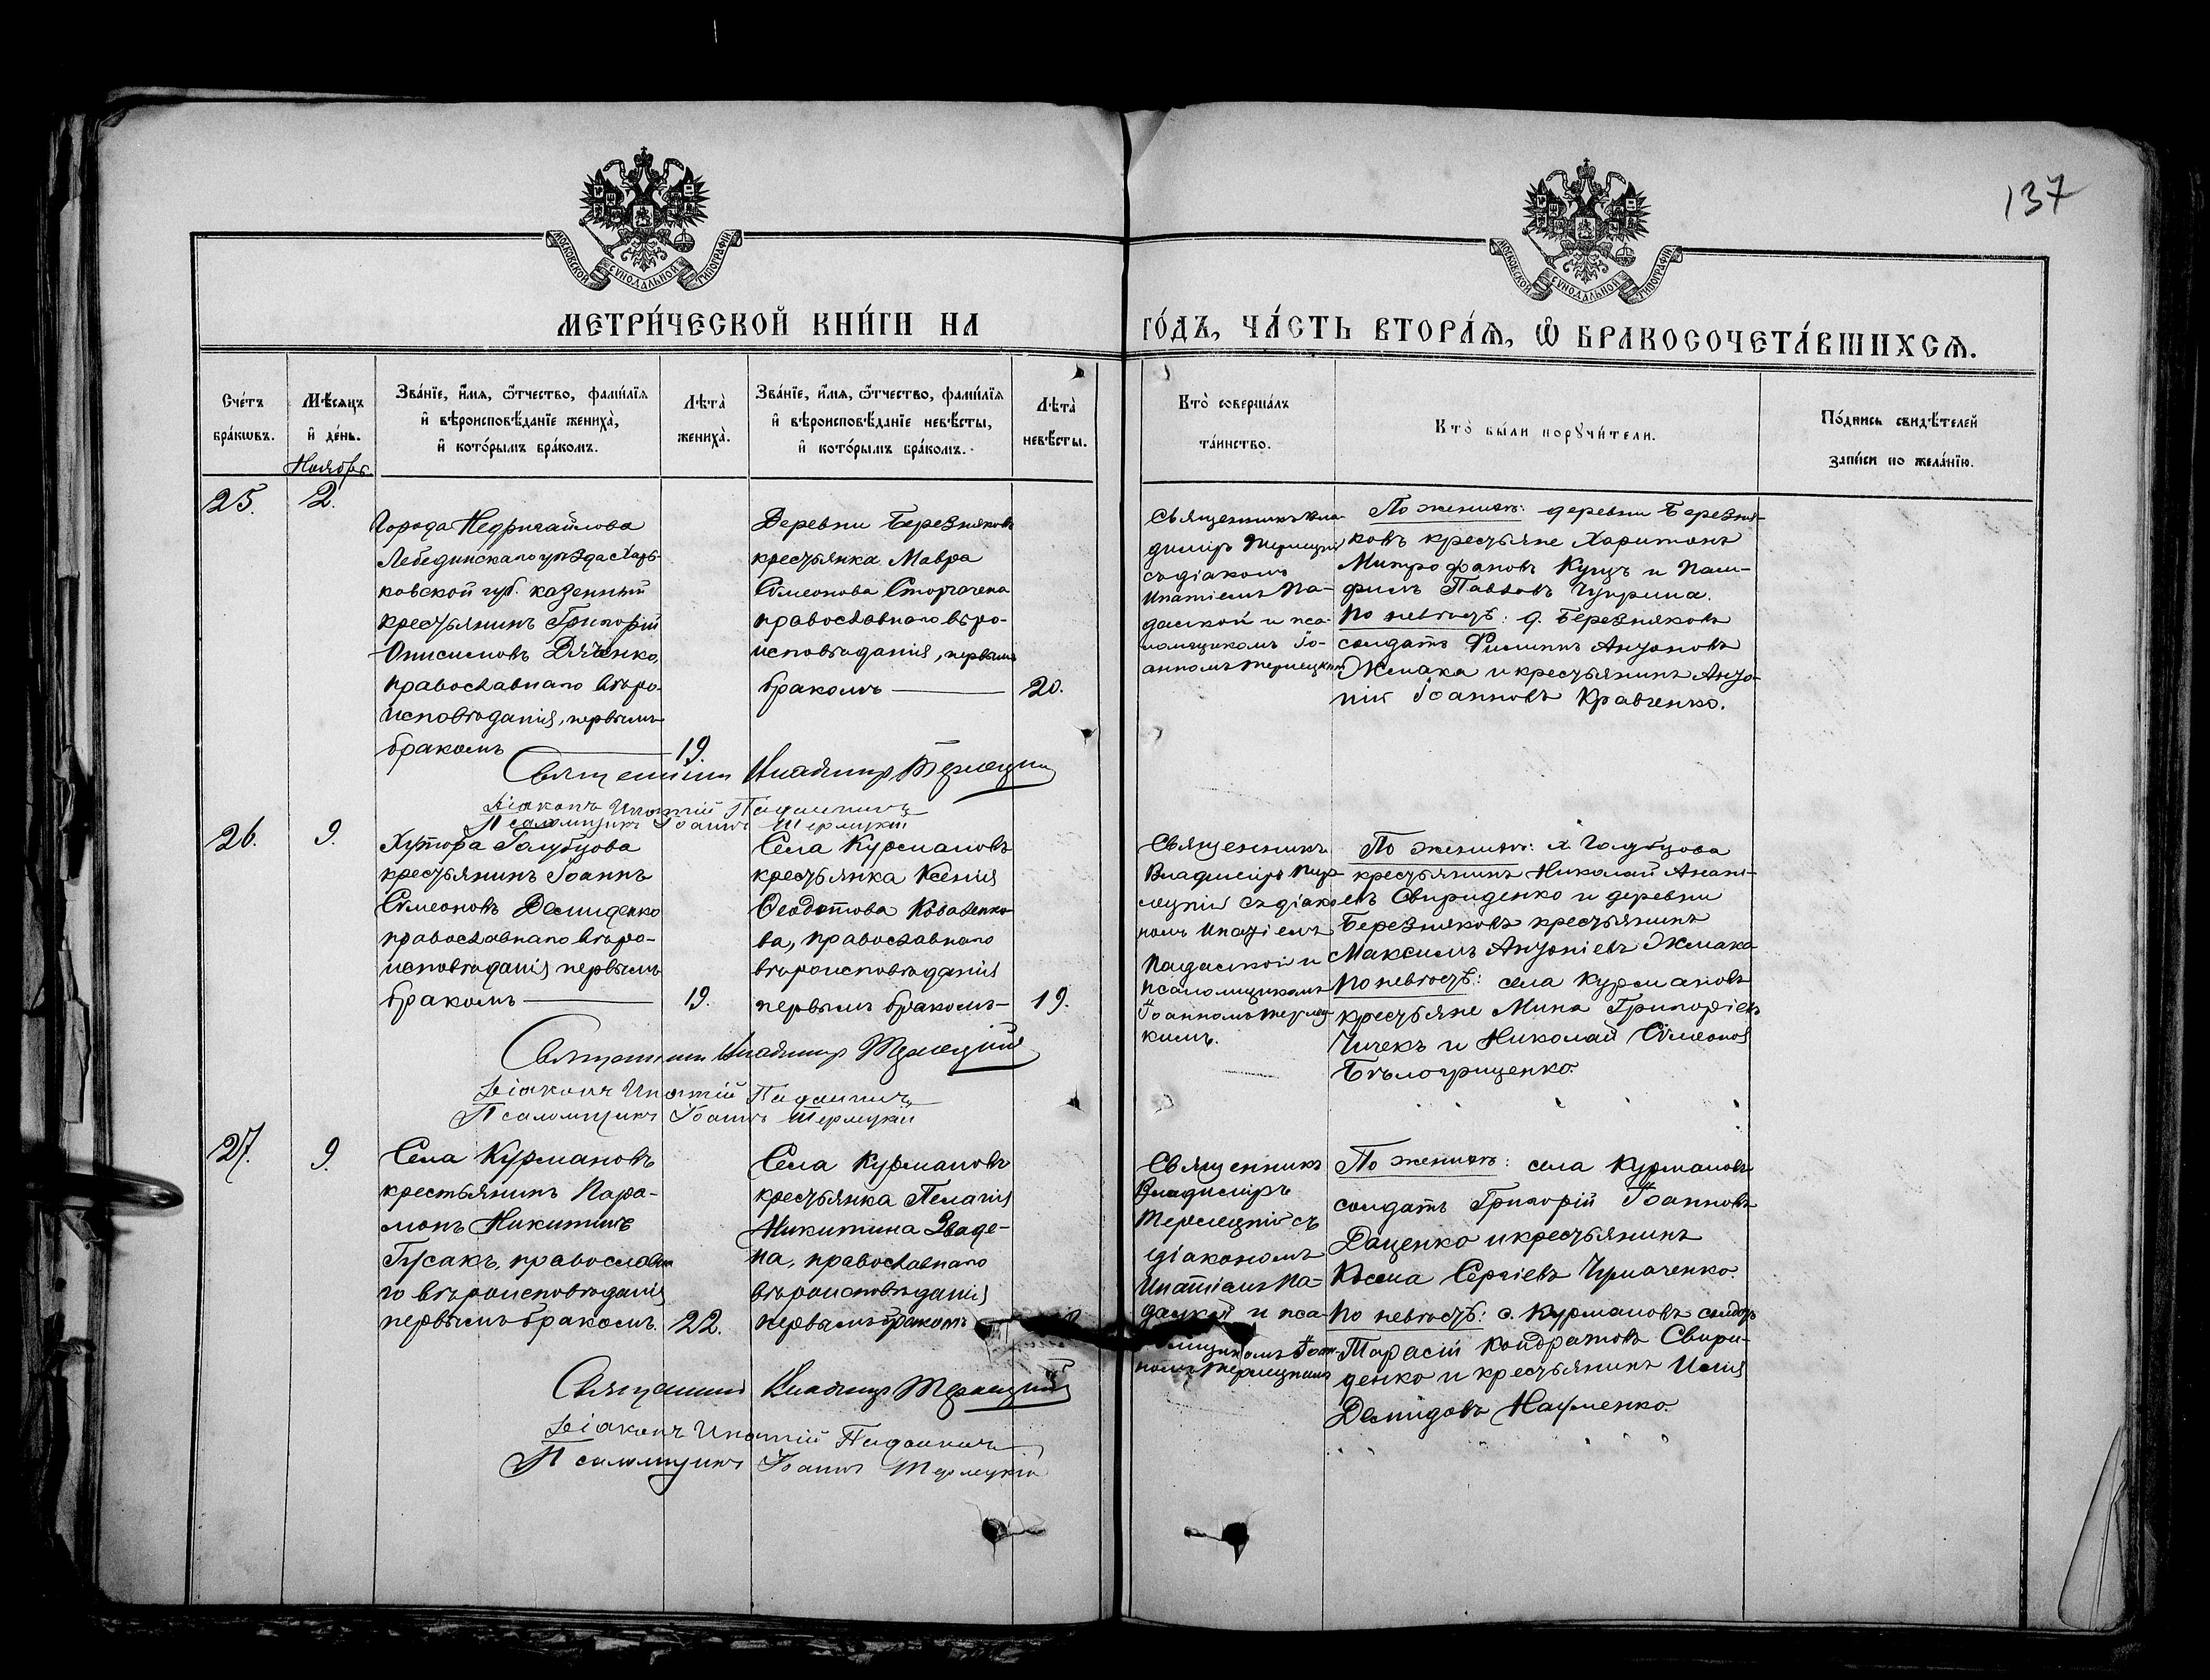 137
МОСКОВСКОЙ СѴНОДАЛЬНОЙ ТИПОГРАФІИ
МОСКОВСКОЙ СѴНОДАЛЬНОЙ ТИПОГРАФІИ
МЕТРИ́ЧЕСКОЙ КНИ́ГИ НА
ГО́ДЪ, ЧА́СТЬ ВТОРА́Ѧ, Ѽ БРАКОСОЧЕТА́ВШИХСѦ.
Сче́тъ
бра́кѡвъ.
Мѣ́сяцъ
и҆ де́нь.
Ноябрь.
Зва́нїе, и҆́мѧ, ѻ҆́тчество, фами́лїѧ
и҆ вѣроисповѣ́данїе жениха̀,
и҆ кото́рымъ бра́комъ.
Лѣта̀
жениха̀.
Зва́нїе, и҆́мѧ, ѻ҆́тчество, фами́лїѧ
и҆ вѣроисповѣ́данїе невѣ́сты,
и҆ кото́рымъ бра́комъ.
Лѣта̀
невѣ́сты.
Кто̀ соверша́лъ
та́инство.
Кто̀ бы́ли порꙋчи́тели.
По́дпись свидѣ́телей
за́писи по жела́нїю.
25.
2.
Города Недригайлова
Лебединскаго уѣзда Харь-
ковской губ. казенный
крестьянинъ Григорій
Онисимовъ Дяченко,
православнаго вѣро-
исповѣданія, первымъ
бракомъ
19.
Деревни Березняковъ
крестьянка Мавра
Сѵмеонова
православнаго вѣро-
исповѣданія, первымъ
бракомъ
20.
Священникъ Вла-
диміръ Терлецкій
съ діакономъ
Ипатіемъ Па-
далкой и пса-
ломщикомъ Іо-
анномъ Терлецкимъ
По женихѣ: деревни Березня-
ковъ крестьяне Харитонъ
Митрофановъ Куцъ и Пам-
филъ Павловъ Чуприна.
По невѣстѣ: д. Березняковъ
солдатъ Филиппъ Антоновъ
Жмака и крестьянинъ Анто-
ній Іоанновъ Кравченко.
Священникъ Владиміръ Терлецкій
Діаконъ Ипатій
Псаломщикъ Іоаннъ Терлецкій
26.
9.
Хутора Голубцова
крестьянинъ Іоаннъ
Сѵмеоновъ Демиденко
православнаго вѣро-
исповѣданія первымъ
бракомъ
19.
Села Курмановъ
крестьянка Ксенія
Ѳеодотова Коваленко-
ва, православнаго
вѣроисповѣданія
первымъ бракомъ
19.
Священникъ
Владиміръ Тер-
лецкій съ діако-
номъ Ипатіемъ
Падалкой и
псаломщикомъ
Іоанномъ Терлец-
кимъ.
По женихѣ: х Голубцова
крестьянинъ Николай Анані-
евъ Свириденко и деревни
Березняковъ крестьянинъ
Максимъ Антоніевъ Жмака
По невѣстѣ: села Курмановъ
крестьяне Мина Григоріевъ
Чичекъ и Николай Сѵмеоновъ
Бѣлогрищенко.
Священникъ Владиміръ Терлецкій
Діаконъ Ипатій
Псаломщикъ Іоаннъ Терлецкій
27.
9.
Села Курмановъ
крестьянинъ Пара-
монъ Никитинъ
Гусакъ, православна-
го вѣроисповѣданія
первымъ бракомъ.
22.
Села Курмановъ
крестьянка Пелагія
Никитина Зваде-
на, православнаго
вѣроисповѣданія
первымъ бракомъ
Священникъ
Владиміръ
Терлецкій съ
діакономъ
Ипатіемъ Па-
далкой и пса-
ломщикомъ Іоан-
номъ Терлецкимъ
По женихѣ: села Курмановъ
солдатъ Григорій Іоанновъ
Даценко и крестьянинъ
Косма Сергіевъ
По невѣстѣ: с. Курмановъ солдатъ
Тарасій Кондратовъ Свири-
денко и крестьянинъ Илія
Демидовъ Науменко.
Священникъ Владиміръ Терлецкій
Діаконъ Ипатій
Псаломщикъ Іоаннъ Терлецкій